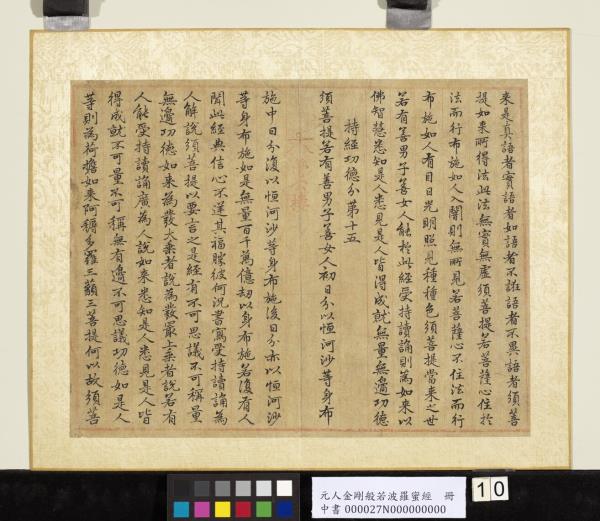 来是真語者實語者如語者不誑語者不異語者須菩
提如来所得法此法無實無虛須菩提若菩薩心住於
法而行布施如人入闇則無所見若菩薩心不住法而行
布施如人有目日光明照見種種色須菩提當来之世
若有善男子善女人能於此經受持讀誦則為如来以
佛智慧悉知是人悉見是人皆得成就無量無邊功德
持經功德分第十五
須菩提若有善男子善女人初日分以恒河沙等身布
施中日分復以恒河沙等身布施後日分亦以恒河沙
等身布施如是無量百千萬億劫以身布施若復有人
聞此經典信心不逆其福勝彼何況書寫受持讀誦為
人解說須菩提以要言之是經有不可思議不可稱量
無邊功德如来為發大乗者說為發最上乗者說若有
人能受持讀誦廣為人說如来悉知是人悉見是人皆
得成就不可量不可稱無有邊不可思議功德如是人
等則為荷擔如来阿耨多羅三藐三菩提何以故須菩
元人金剛般若波羅蜜經 冊
中書 000027N000000000
10